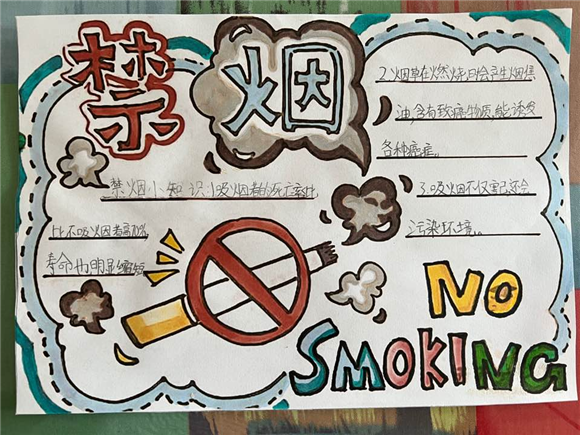 禁烟
禁烟小知识1吸烟者的死亡率比
比不吸烟者高70%,
寿命也明显缩短
2.烟草在燃烧日会产生烟焦
油,含有致癌物质,能诱发
各种癌症。
3.吸烟不仅害己还会
污染环境。
NO
SMOKING